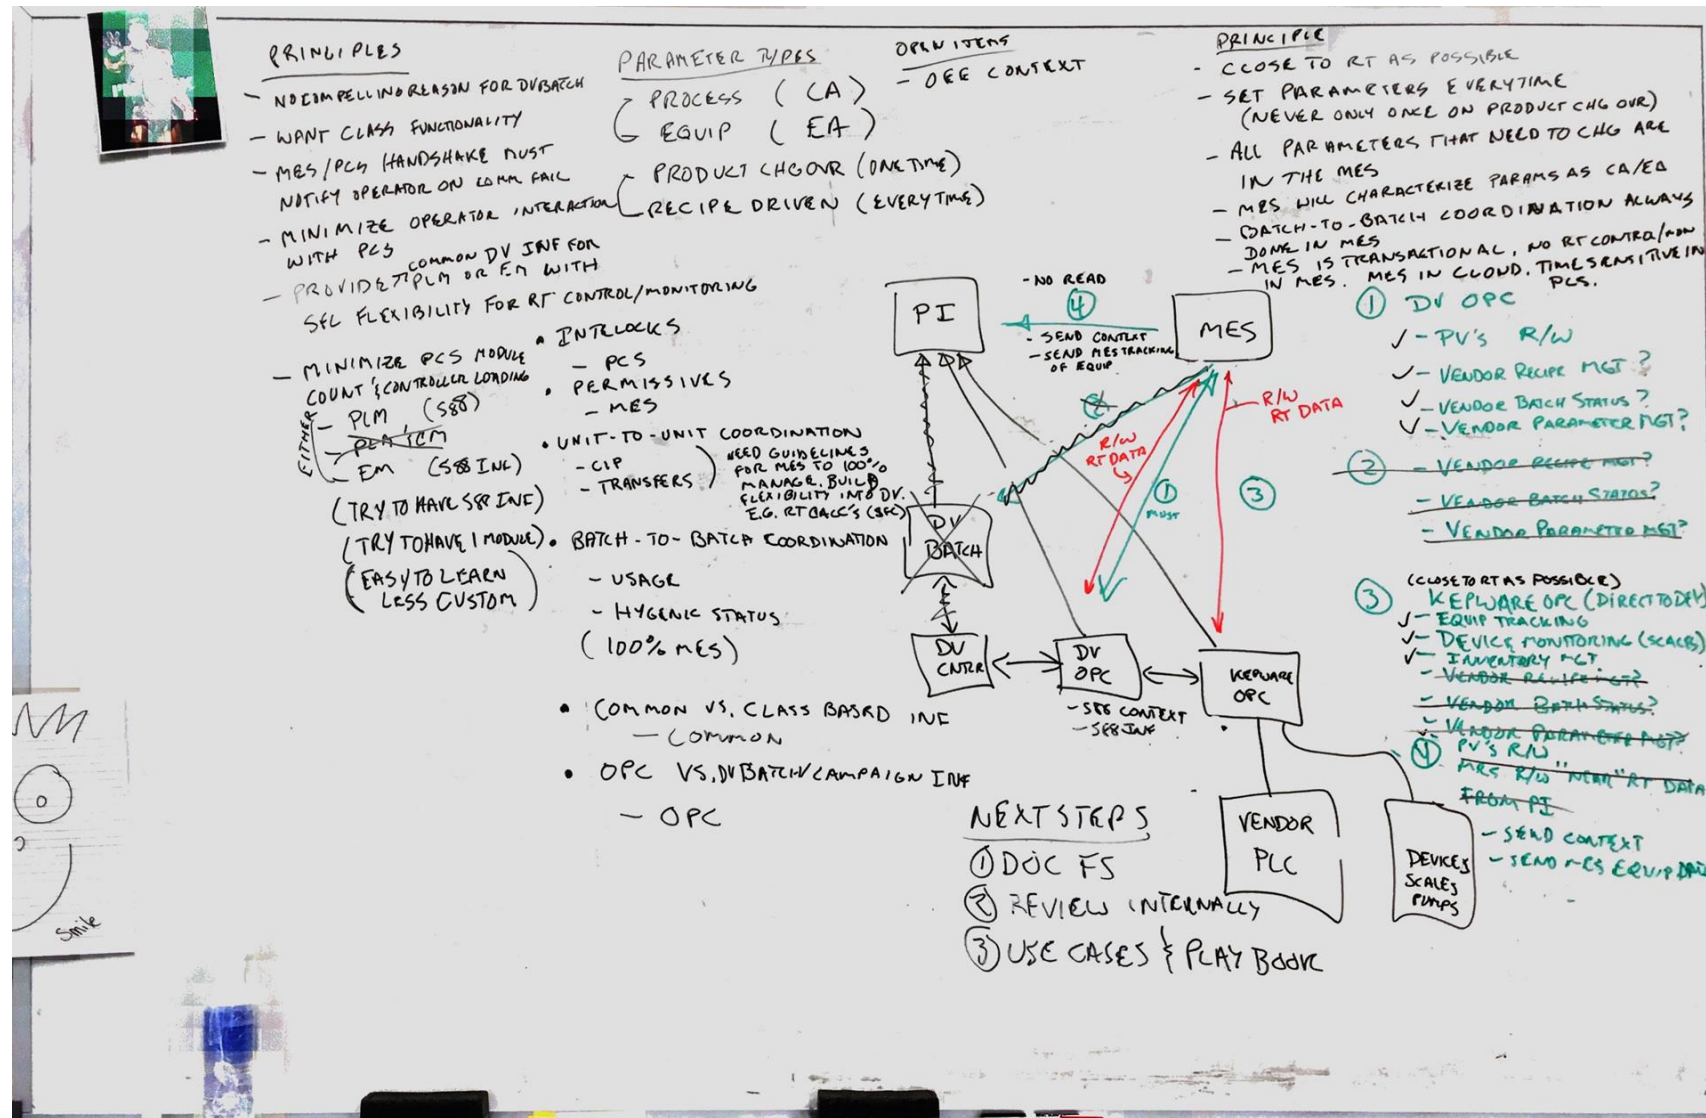 PRINCIPLES
- NO COMPELLING REASON FOR DVBATCH
- WANT CLASS FUNCTIONALITY
- MES/PCS HANDSHAKE MUST
NOTIFY OPERATOR ON COMM FAIL
- MINIMIZE OPERATOR INTERACTION
WITH PCS
COMMON DV INF FOR
- PROVIDE PLM OR EM WITH
SFC FLEXIBILITY FOR RT CONTROL/MONITORING
- MINIMIZE PCS MODULE
COUNT & CONTROLLER LOADING
EITHER
- PLM (S88)
- PLM/EM
- EM (S88 INF)
(TRY TO HAVE S88 INF)
(TRY TO HAVE 1 MODULE)
(EASY TO LEARN
LESS CUSTOM)
PARAMETER TYPES
- PROCESS (CA)
- EQUIP (EA)
- PRODUCT CHGOVR (ONE TIME)
- RECIPE DRIVEN (EVERYTIME)
• INTERLOCKS
- PCS
• PERMISSIVES
- MES
• UNIT-TO-UNIT COORDINATION
- CIP
- TRANSFERS
NEED GUIDELINES
FOR MES TO 100%
MANAGE. BUILD
FLEXIBILITY INTO DV.
E.G. RT CALC'S (SFC)
• BATCH-TO-BATCH COORDINATION
- USAGE
- HYGENIC STATUS
(100% MES)
• COMMON VS. CLASS BASED INF
- COMMON
• OPC VS. DVBATCH/CAMPAIGN INF
- OPC
OPEN ITEMS
- OEE CONTEXT
PRINCIPLE
- CLOSE TO RT AS POSSIBLE
- SET PARAMETERS EVERYTIME
(NEVER ONLY ONCE ON PRODUCT CHG OVR)
- ALL PARAMETERS THAT NEED TO CHG ARE
IN THE MES
- MES WILL CHARACTERIZE PARAMS AS CA/EA
- BATCH-TO-BATCH COORDINATION ALWAYS
DONE IN MES
- MES IS TRANSACTIONAL, NO RT CONTROL/MON
IN MES. MES IN CLOUD. TIME SENSITIVE IN
PCS.
PI
- NO READ
4
- SEND CONTEXT
- SEND MES TRACKING
OF EQUIP
MES
2
R/W
RT DATA
1
MUST
R/W
RT DATA
3
DV
BATCH
DV
CNTRLR
DV
OPC
- S88 CONTEXT
- S88 INF
KEPWARE
OPC
VENDOR
PLC
DEVICES
SCALES
PUMPS
1 DV OPC
✓ - PV'S R/W
✓ - VENDOR RECIPE MGT?
✓ - VENDOR BATCH STATUS?
✓ - VENDOR PARAMETER MGT?
2 - VENDOR RECIPE MGT?
- VENDOR BATCH STATUS?
- VENDOR PARAMETER MGT?
(CLOSE TO RT AS POSSIBLE)
3 KEPWARE OPC (DIRECT TO DEV)
✓ - EQUIP TRACKING
✓ - DEVICE MONITORING (SCALES)
✓ - INVENTORY MGT.
- VENDOR RECIPE MGT?
- VENDOR BATCH STATUS?
- VENDOR PARAMETER MGT?
✓ - PV'S R/W
4 MES R/W "NEAR" RT DATA
FROM PI
- SEND CONTEXT
- SEND MES EQUIP DATA
NEXT STEPS
1 DOC FS
2 REVIEW INTERNALLY
3 USE CASES & PLAY BOOK
Smile